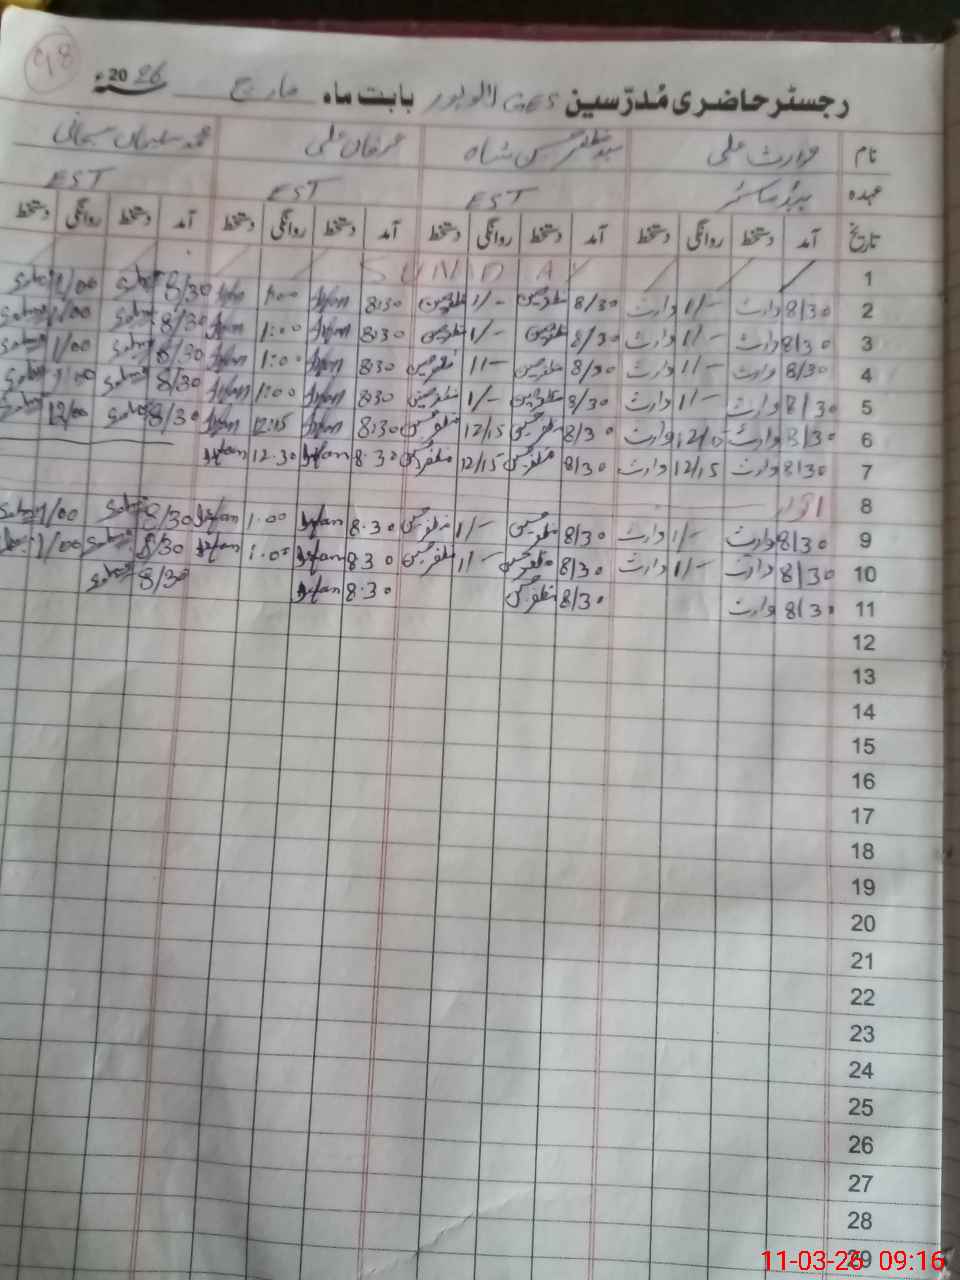 98
رجسٹر حاضری مُدرّسین GES لالو پور بابت ماہ مارچ 2026ء
نام وارث علی سید مظفر حسین شاہ عرفان علی محمد سلیمان سبحانی
عہدہ ہیڈ ماسٹر EST EST EST
تاریخ آمد دستخط روانگی دستخط آمد دستخط روانگی دستخط آمد دستخط روانگی دستخط آمد دستخط روانگی دستخط
1 SUNDAY
2 8/30 وارث 1/- وارث 8/30 مظفر حسین 1/- مظفر حسین 8:30 Irfan 1:00 Irfan 8/30 1/00
3 8/30 وارث 1/- وارث 8/30 مظفر حسین 1/- مظفر حسین 8:30 Irfan 1:00 Irfan 8/30 1/00
4 8/30 وارث 1/- وارث 8/30 مظفر حسین 1/- مظفر حسین 8:30 Irfan 1:00 Irfan 8/30 1/00
5 8/30 وارث 1/- وارث 8/30 مظفر حسین 1/- مظفر حسین 8:30 Irfan 1:00 Irfan 8/30 1/00
6 8/30 وارث 12/15 وارث 8/30 مظفر حسین 12/15 مظفر حسین 8:30 Irfan 12:15 Irfan 8/30 12/00
7 8/30 وارث 12/15 وارث 8/30 مظفر حسین 12/15 مظفر حسین 8.30 Irfan 12.30 Irfan
8 اتوار
9 8/30 وارث 1/- وارث 8/30 مظفر حسین 1/- مظفر حسین 8.30 Irfan 1.00 Irfan 8/30 1/00
10 8/30 وارث 1/- وارث 8/30 مظفر حسین 1/- مظفر حسین 8.30 Irfan 1.00 Irfan 8/30 1/00
11 8/30 وارث 8/30 مظفر حسین 8.30 Irfan 8/30
12
13
14
15
16
17
18
19
20
21
22
23
24
25
26
27
28
29
11-03-26 09:16